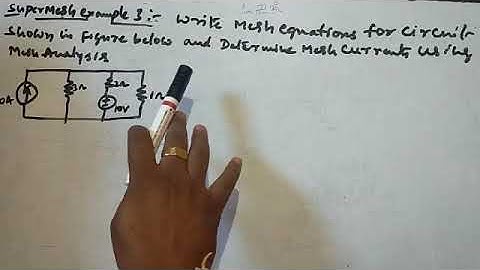 Supermesh Example 3 :- Write Mesh equations for circuit
shown in Figure below and Determine Mesh Currents Using
Mesh Analysis
3Ω 2Ω
10V 1Ω